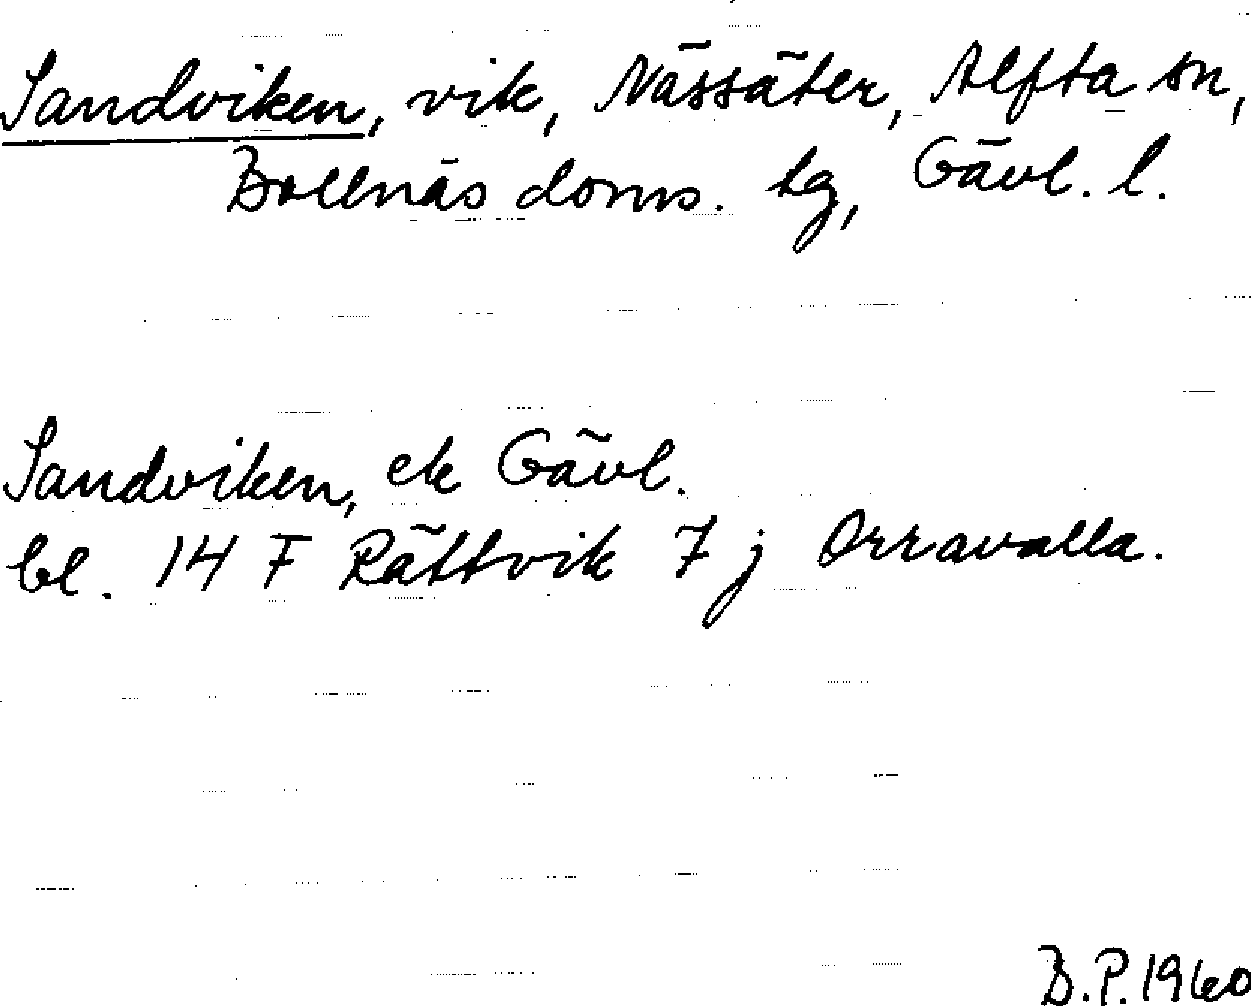 Sandviken, vik, Nässäter, Alfta sn,
Bollnäs doms. tg, Gävl. l.
Sandviken, ek Gävl.
bl. 14 F Rättvik 7 j Orravalla.
B.P. 1960